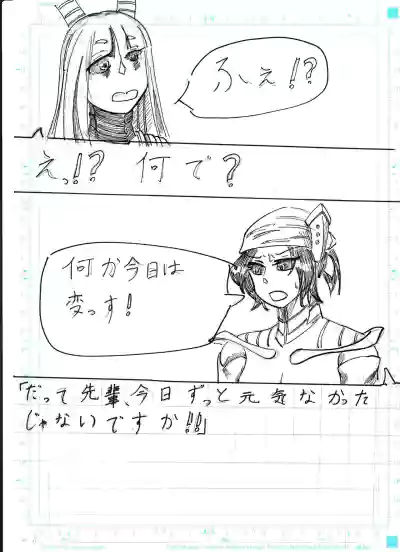 ふぇ!?
えっ!? 何で?
何か今日は
変っす!
「だって先輩、今日ずっと元気なかった
じゃないですか!!」